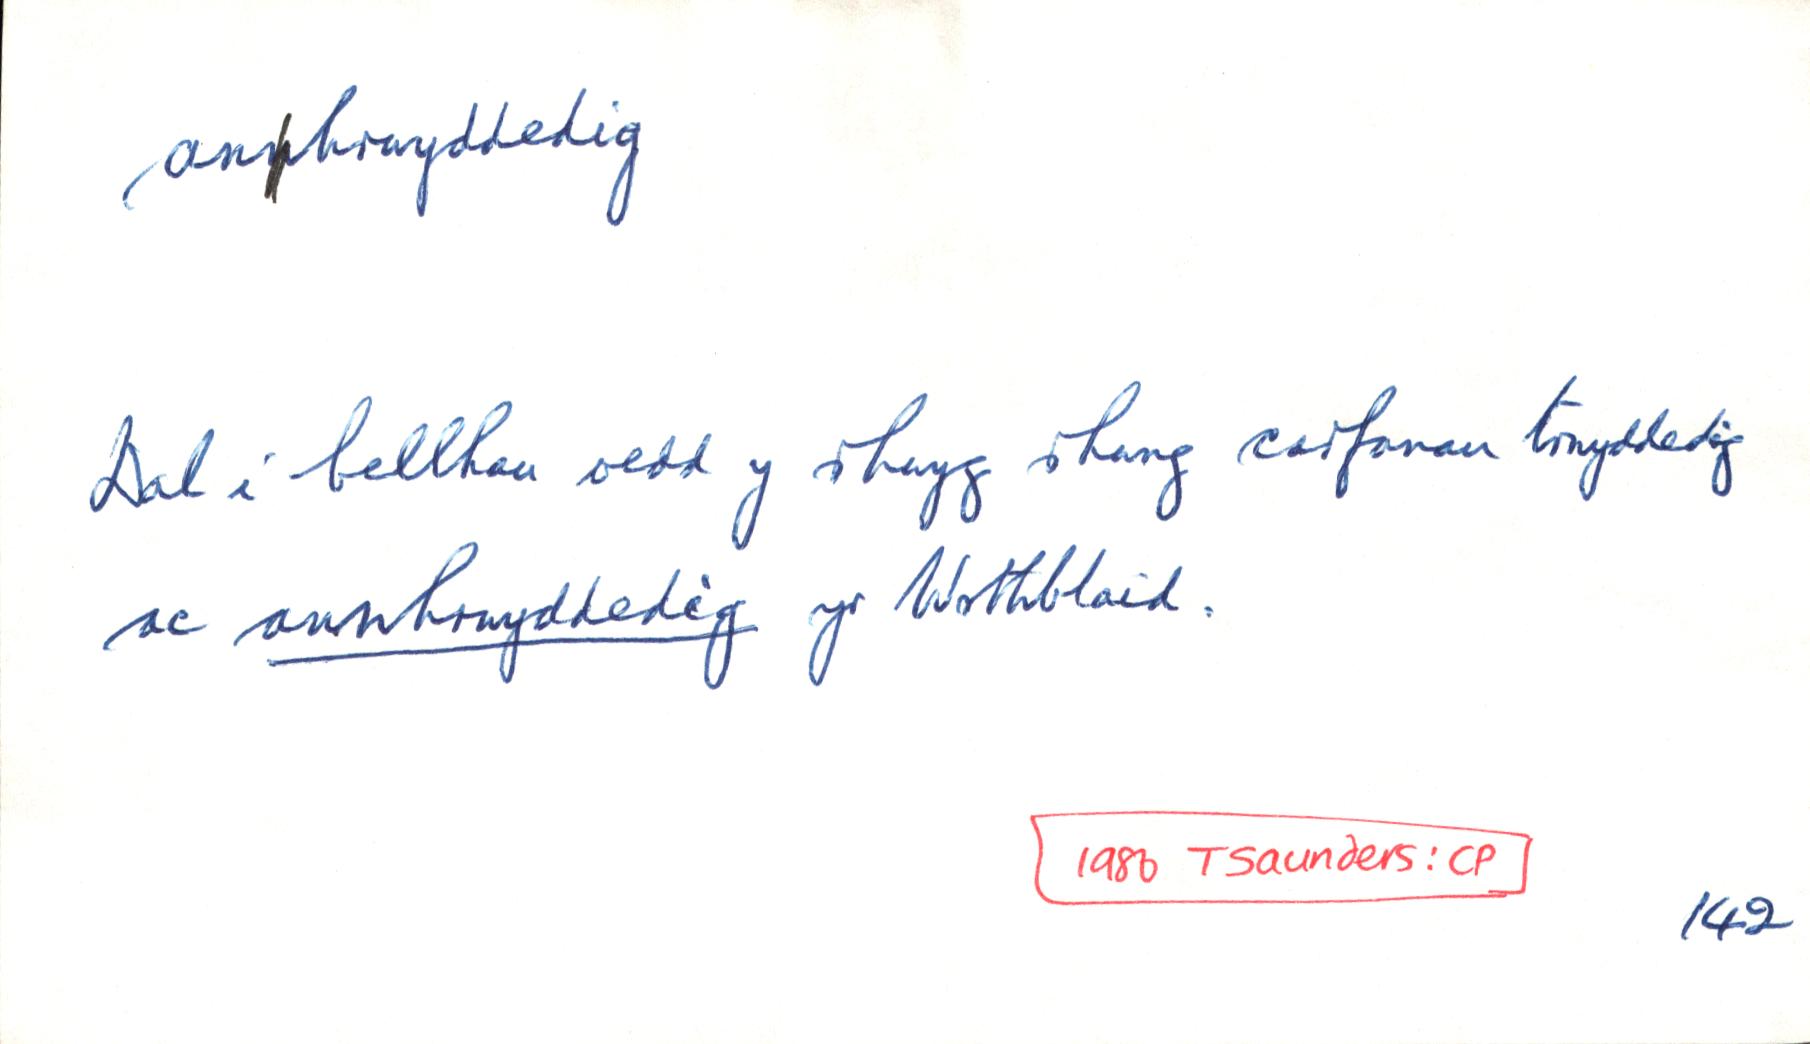 anhrwyddedig
Dal i bellhau oedd y rhwyg rhwng carfanau trwyddedig
ac annhrwyddedig yr Wrthblaid.
1986 TSaunders: CP
142